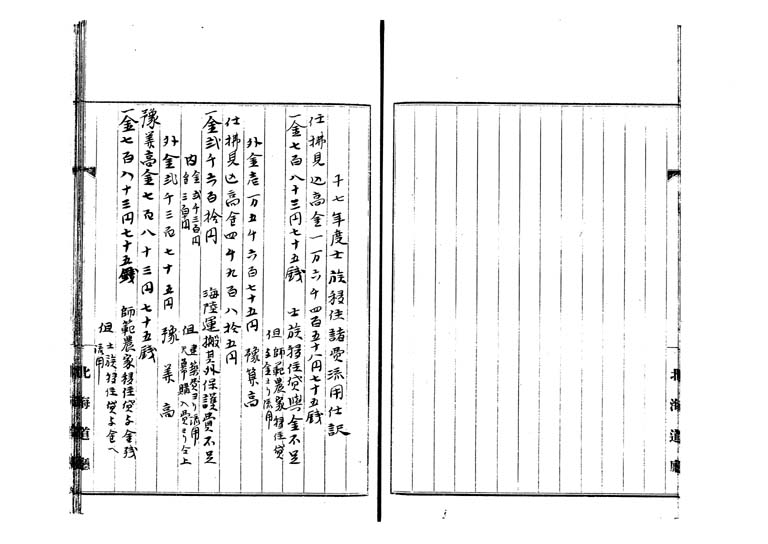 十七年度士族移住諸費流用仕訳
仕拂見込高金一万六千四百五十八円七十五銭
一金七百八十三円七十五銭 士族移住貸與金不足
但師範農家移住貸与金ヨリ流用
外金壱万五千六百七十五円 豫算高
仕拂見込高金四千九百八拾五円
一金弐千六百拾円 海陸運搬其外保護費不足
内金弐千三百円 但建築費ヨリ流用
金三百円
外金弐千三百七十五円 豫算高
豫算高金七百八十三円七十五銭
一金七百八十三円七十五銭 師範農家移住貸与金残
但士族移住貸与金ヘ流用
北海道廳
北海道廳